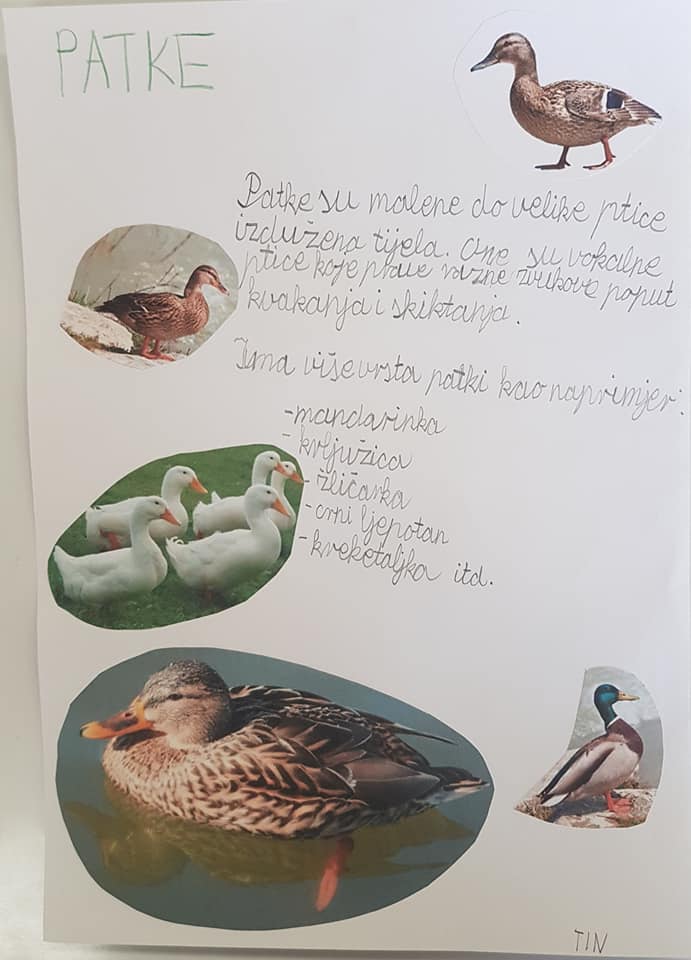 PATKE
Patke su malene do velike ptice
izdužena tijela. One su vokalne
ptice koje prave razne zvukove poput
kvakanja i skiktanja.
Ima više vrsta patki kao naprimjer:
-mandarinka
- krljužica
- žličarka
-crni ljepotan
-kreketaljka itd.
TIN